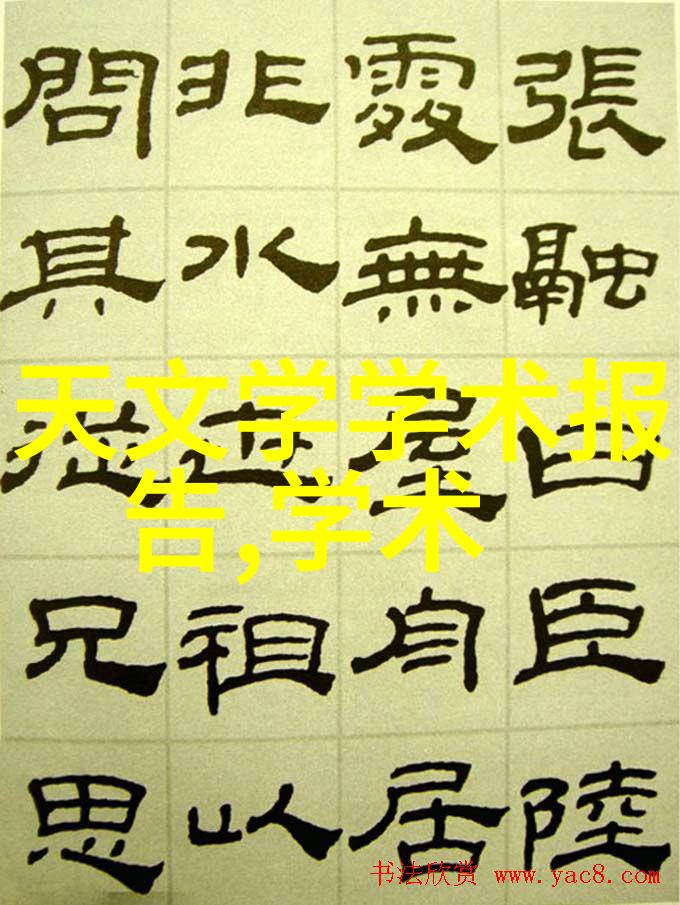 張融曰臣陸
處無屋舟居
非水世祖以
問其從兄思
天文学学术报
告,学术
书法欣赏 www.yac8.com